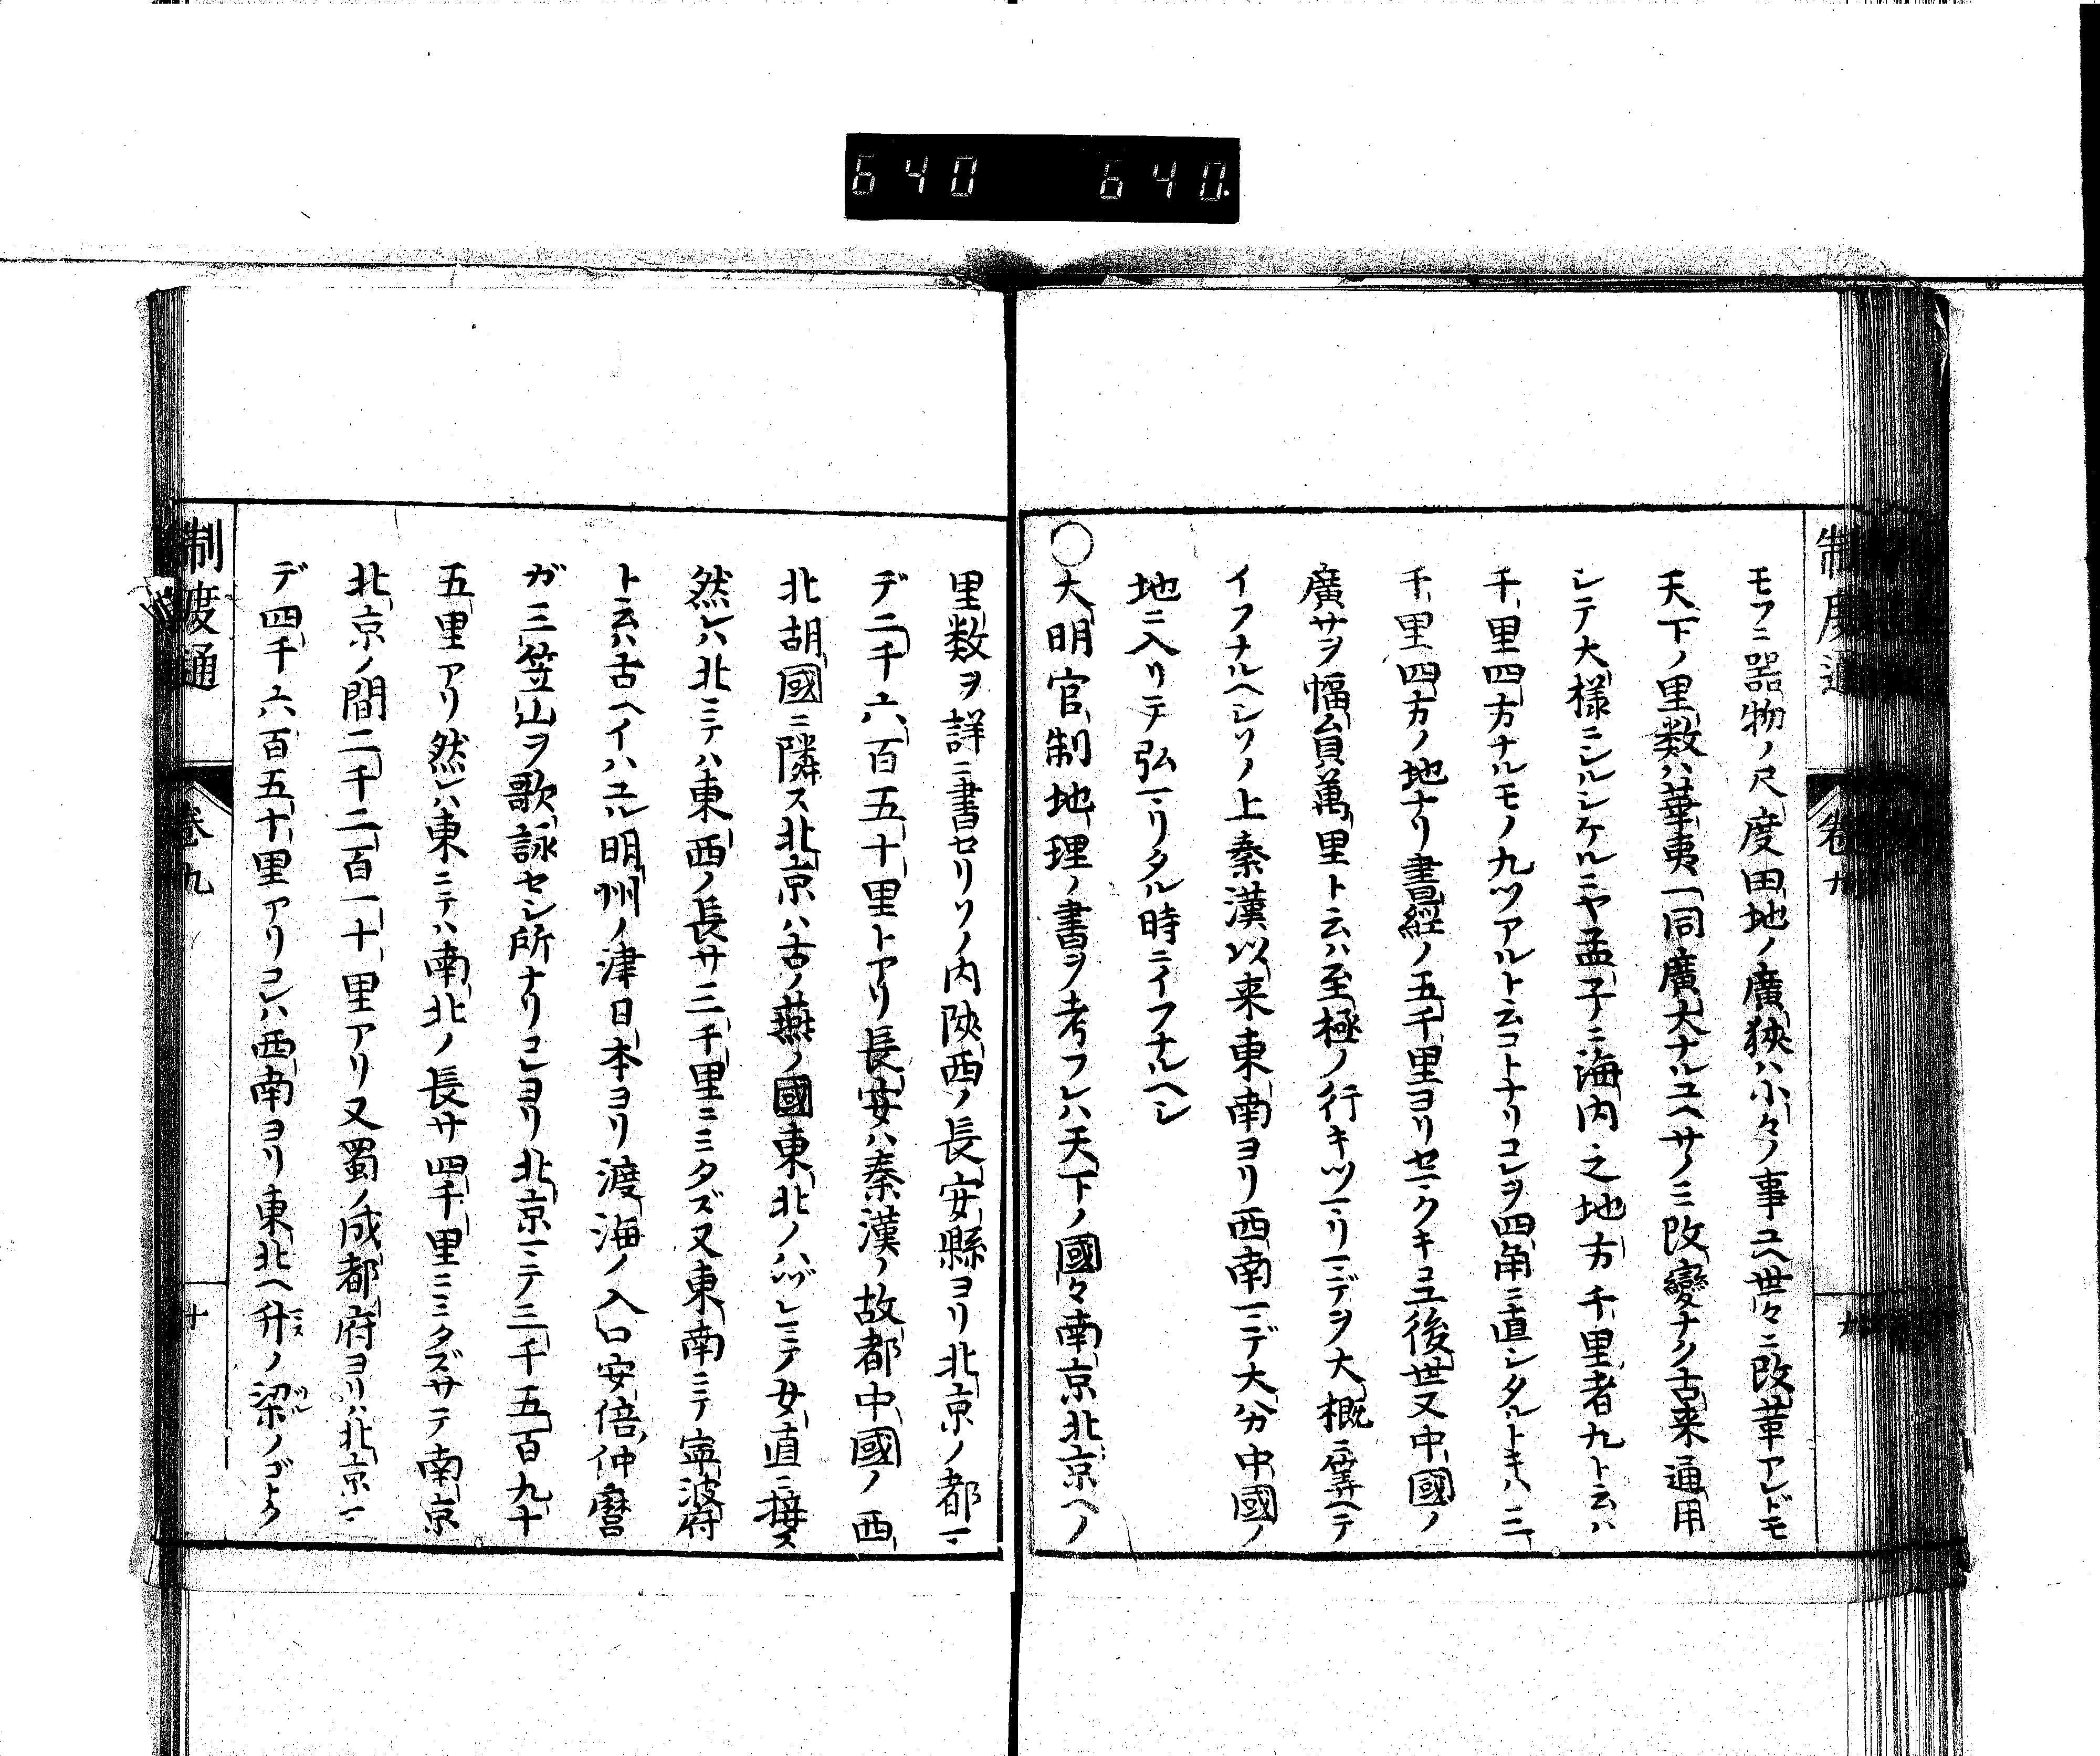 640 640
制度通 卷九 九
モフニ器物ノ尺度田地ノ廣狹ハ小々ノ事ユヘ世々ニ改革アレドモ
天下ノ里数ハ華夷一同廣大ナルユヘサノミ改變ナク古来通用
シテ大様ニシルシケルニヤ孟子ニ海内之地方千里者九ト云ハ
千里四方ナルモノ九ツアルト云コトナリコレヲ四角ニ直シタルトキハ三
千里四方ノ地ナリ書經ノ五千里ヨリセマクキコユ後世又中國ノ
廣サヲ幅員萬里ト云ハ至極ノ行キツマリマデヲ大概ニ算ヘテ
イフナルヘシソノ上秦漢以来東南ヨリ西南マデ大分中國ノ
地ニ入リテ弘マリタル時ニイフナルヘシ
○大明官制地理ノ書ヲ考フレハ天下ノ國々南京北京ヘノ
里数ヲ詳ニ書セリソノ内陝西ノ長安縣ヨリ北京ノ都マ
デ二千六百五十里トアリ長安ハ秦漢ノ故都中國ノ西
北胡國ニ隣ス北京ハ古ノ燕ノ國東北ノハヅレニテ女直ニ接ス
然レハ北ニテハ東西ノ長サ三千里ニミタズ又東南ニテ寧波府
ト云ハ古ヘイハユル明州ノ津日本ヨリ渡海ノ入口安倍仲麿
ガ三笠山ヲ歌詠セシ所ナリコレヨリ北京マテ三千五百九十
五里アリ然レハ東ニテハ南北ノ長サ四千里ニミタズサテ南京
北京ノ間二千二百一十里アリ又蜀ノ成都府ヨリハ北京マ
デ四千六百五十里アリコレハ西南ヨリ東北ヘ升ノ梁ノゴトク
制度通 卷九 十